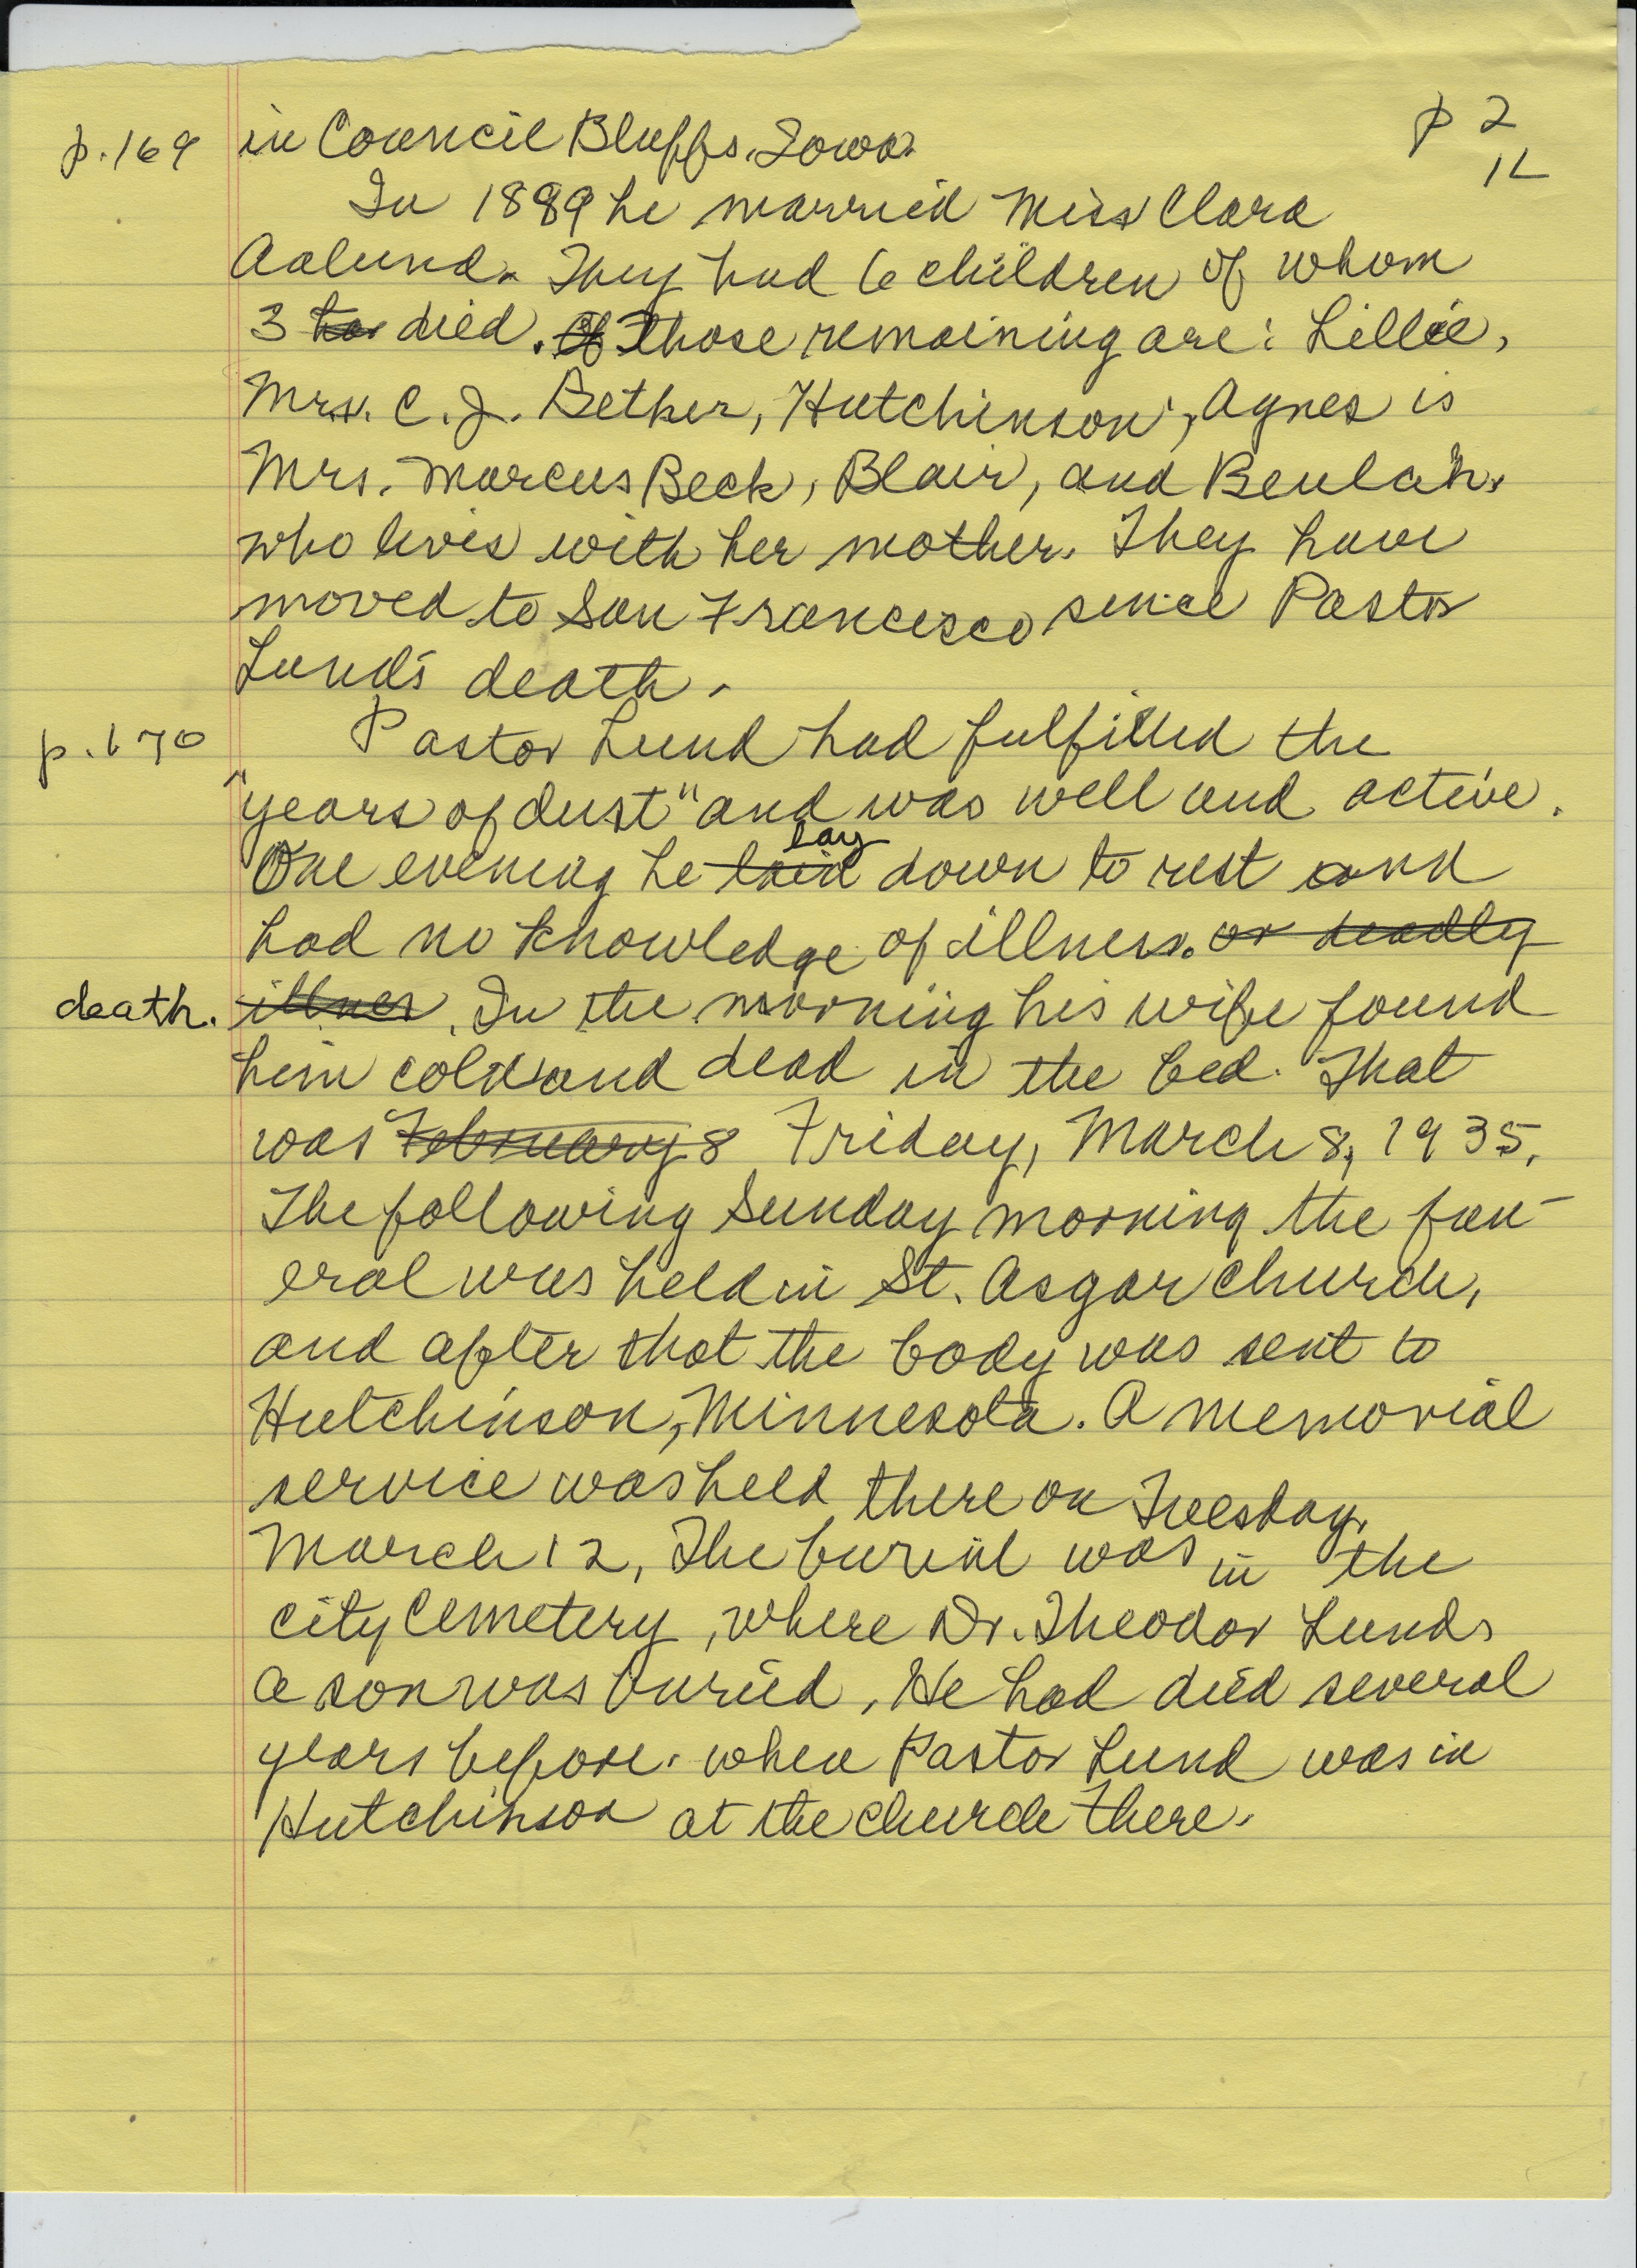 p 2
p.169 in Council Bluffs, Iowa.
In 1889 he married Miss Clara
Aalund. They had 6 children of whom
3 ha died. Of Those remaining are: Lillie,
Mrs. C. J. Bether, Hutchinson, Agnes is
Mrs. Marcus Beck, Blair, and Beulah,
who lives with her mother. They have
moved to San Francisco since Pastor
Lund's death.
p.170 Pastor Lund had fulfilled the
"years of dust" and was well and active.
lay
One evening he laid down to rest and
had no knowledge of illness. or deadly
death. illnes. In the morning his wife found
him cold and dead in the bed. That
was February 8 Friday, March 8, 1935.
The following Sunday morning the fun-
eral was held in St. Asgar church,
and after that the body was sent to
Hutchinson, Minnesota. A memorial
service was held there on Tuesday,
March 12, The burial was in the
city Cemetery, where Dr. Theodor Lund,
a son was buried, He had died several
years before. when Pastor Lund was in
Hutchinson at the church there.